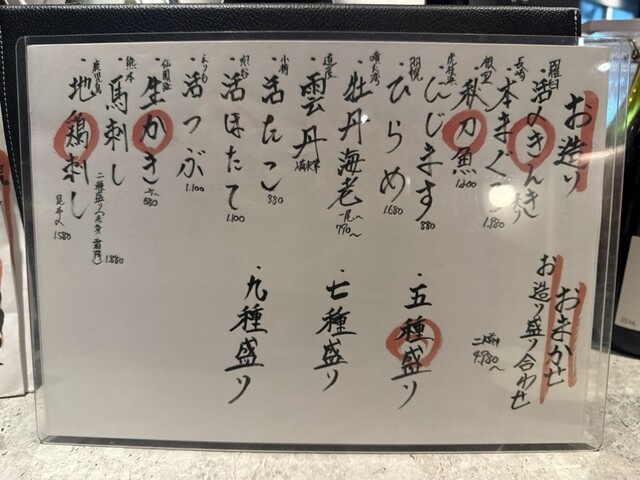 お造り
羅臼
・活〆きんき
長崎
・本まぐろ 1.980
根室
・秋刀魚 1.200
虎杖浜
・にじます 880
羽幌
・ひらめ 1.680
噴火湾
・牡丹海老 一尾〜 790〜
道産
・雲丹
小樽
・活たこ 880
・活ほたて 1.100
えりも
・活つぶ 1.100
仙鳳趾
・生かき 一ヶ〜 680
熊本
・馬刺し 1.880
二種盛り(赤身・霜降)
鹿児島
・地鶏刺し 1.580
おまかせ
お造り盛り合わせ
二人前 4.980〜
・五種盛り
・七種盛り
・九種盛り